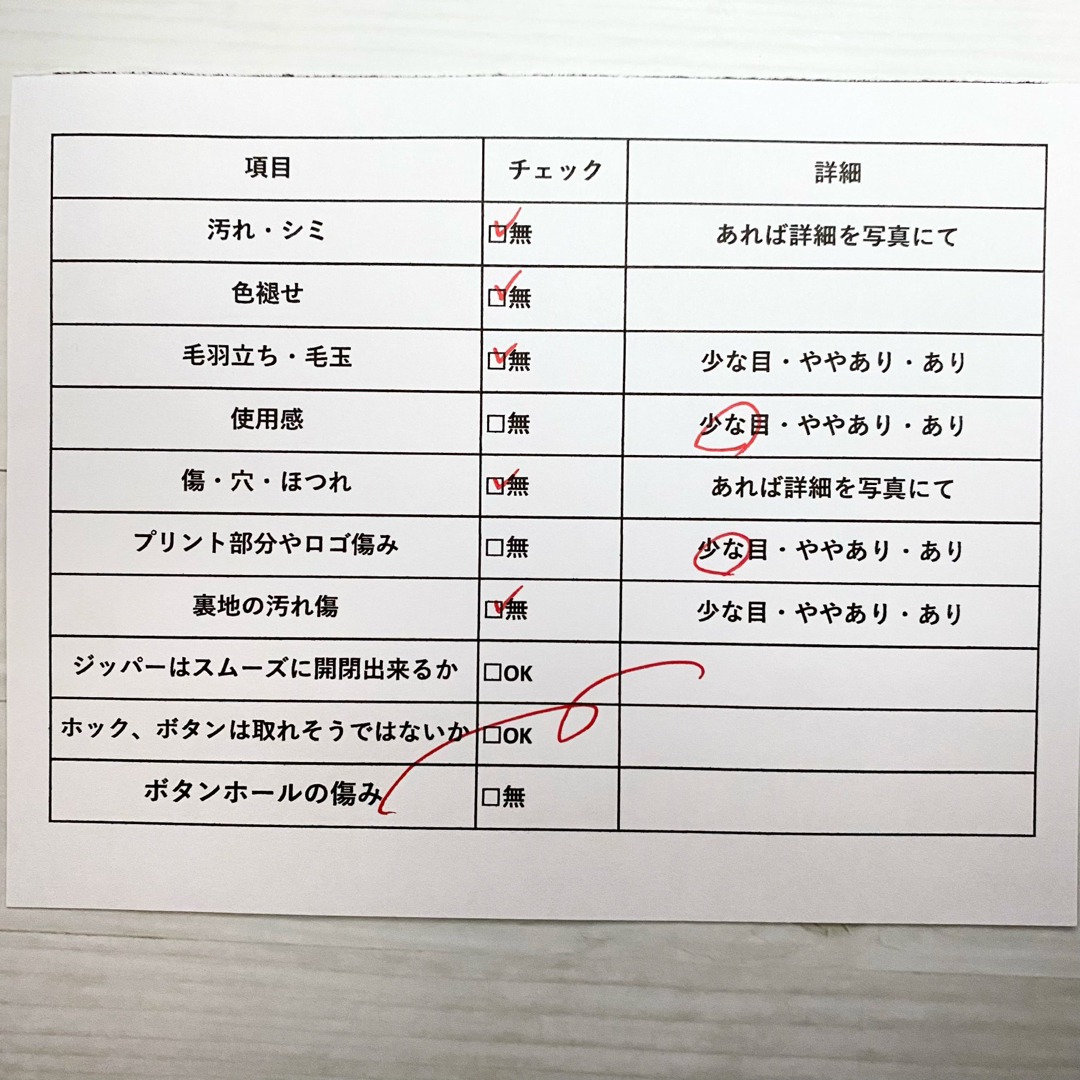 項目 チェック 詳細
汚れ・シミ ☑無 あれば詳細を写真にて
色褪せ ☑無
毛羽立ち・毛玉 ☑無 少な目・ややあり・あり
使用感 □無 少な目・ややあり・あり
傷・穴・ほつれ ☑無 あれば詳細を写真にて
プリント部分やロゴ傷み □無 少な目・ややあり・あり
裏地の汚れ傷 ☑無 少な目・ややあり・あり
ジッパーはスムーズに開閉出来るか □OK
ホック、ボタンは取れそうではないか □OK
ボタンホールの傷み □無